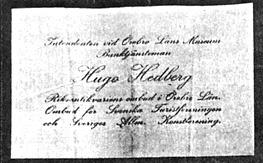 Intendenten vid Örebro Läns Museum
Banktjänsteman
Hugo Hedberg
Riksantikvariens ombud i Örebro Län.
Ombud för Svenska Turistföreningen
och Sveriges Allm. Konstförening.